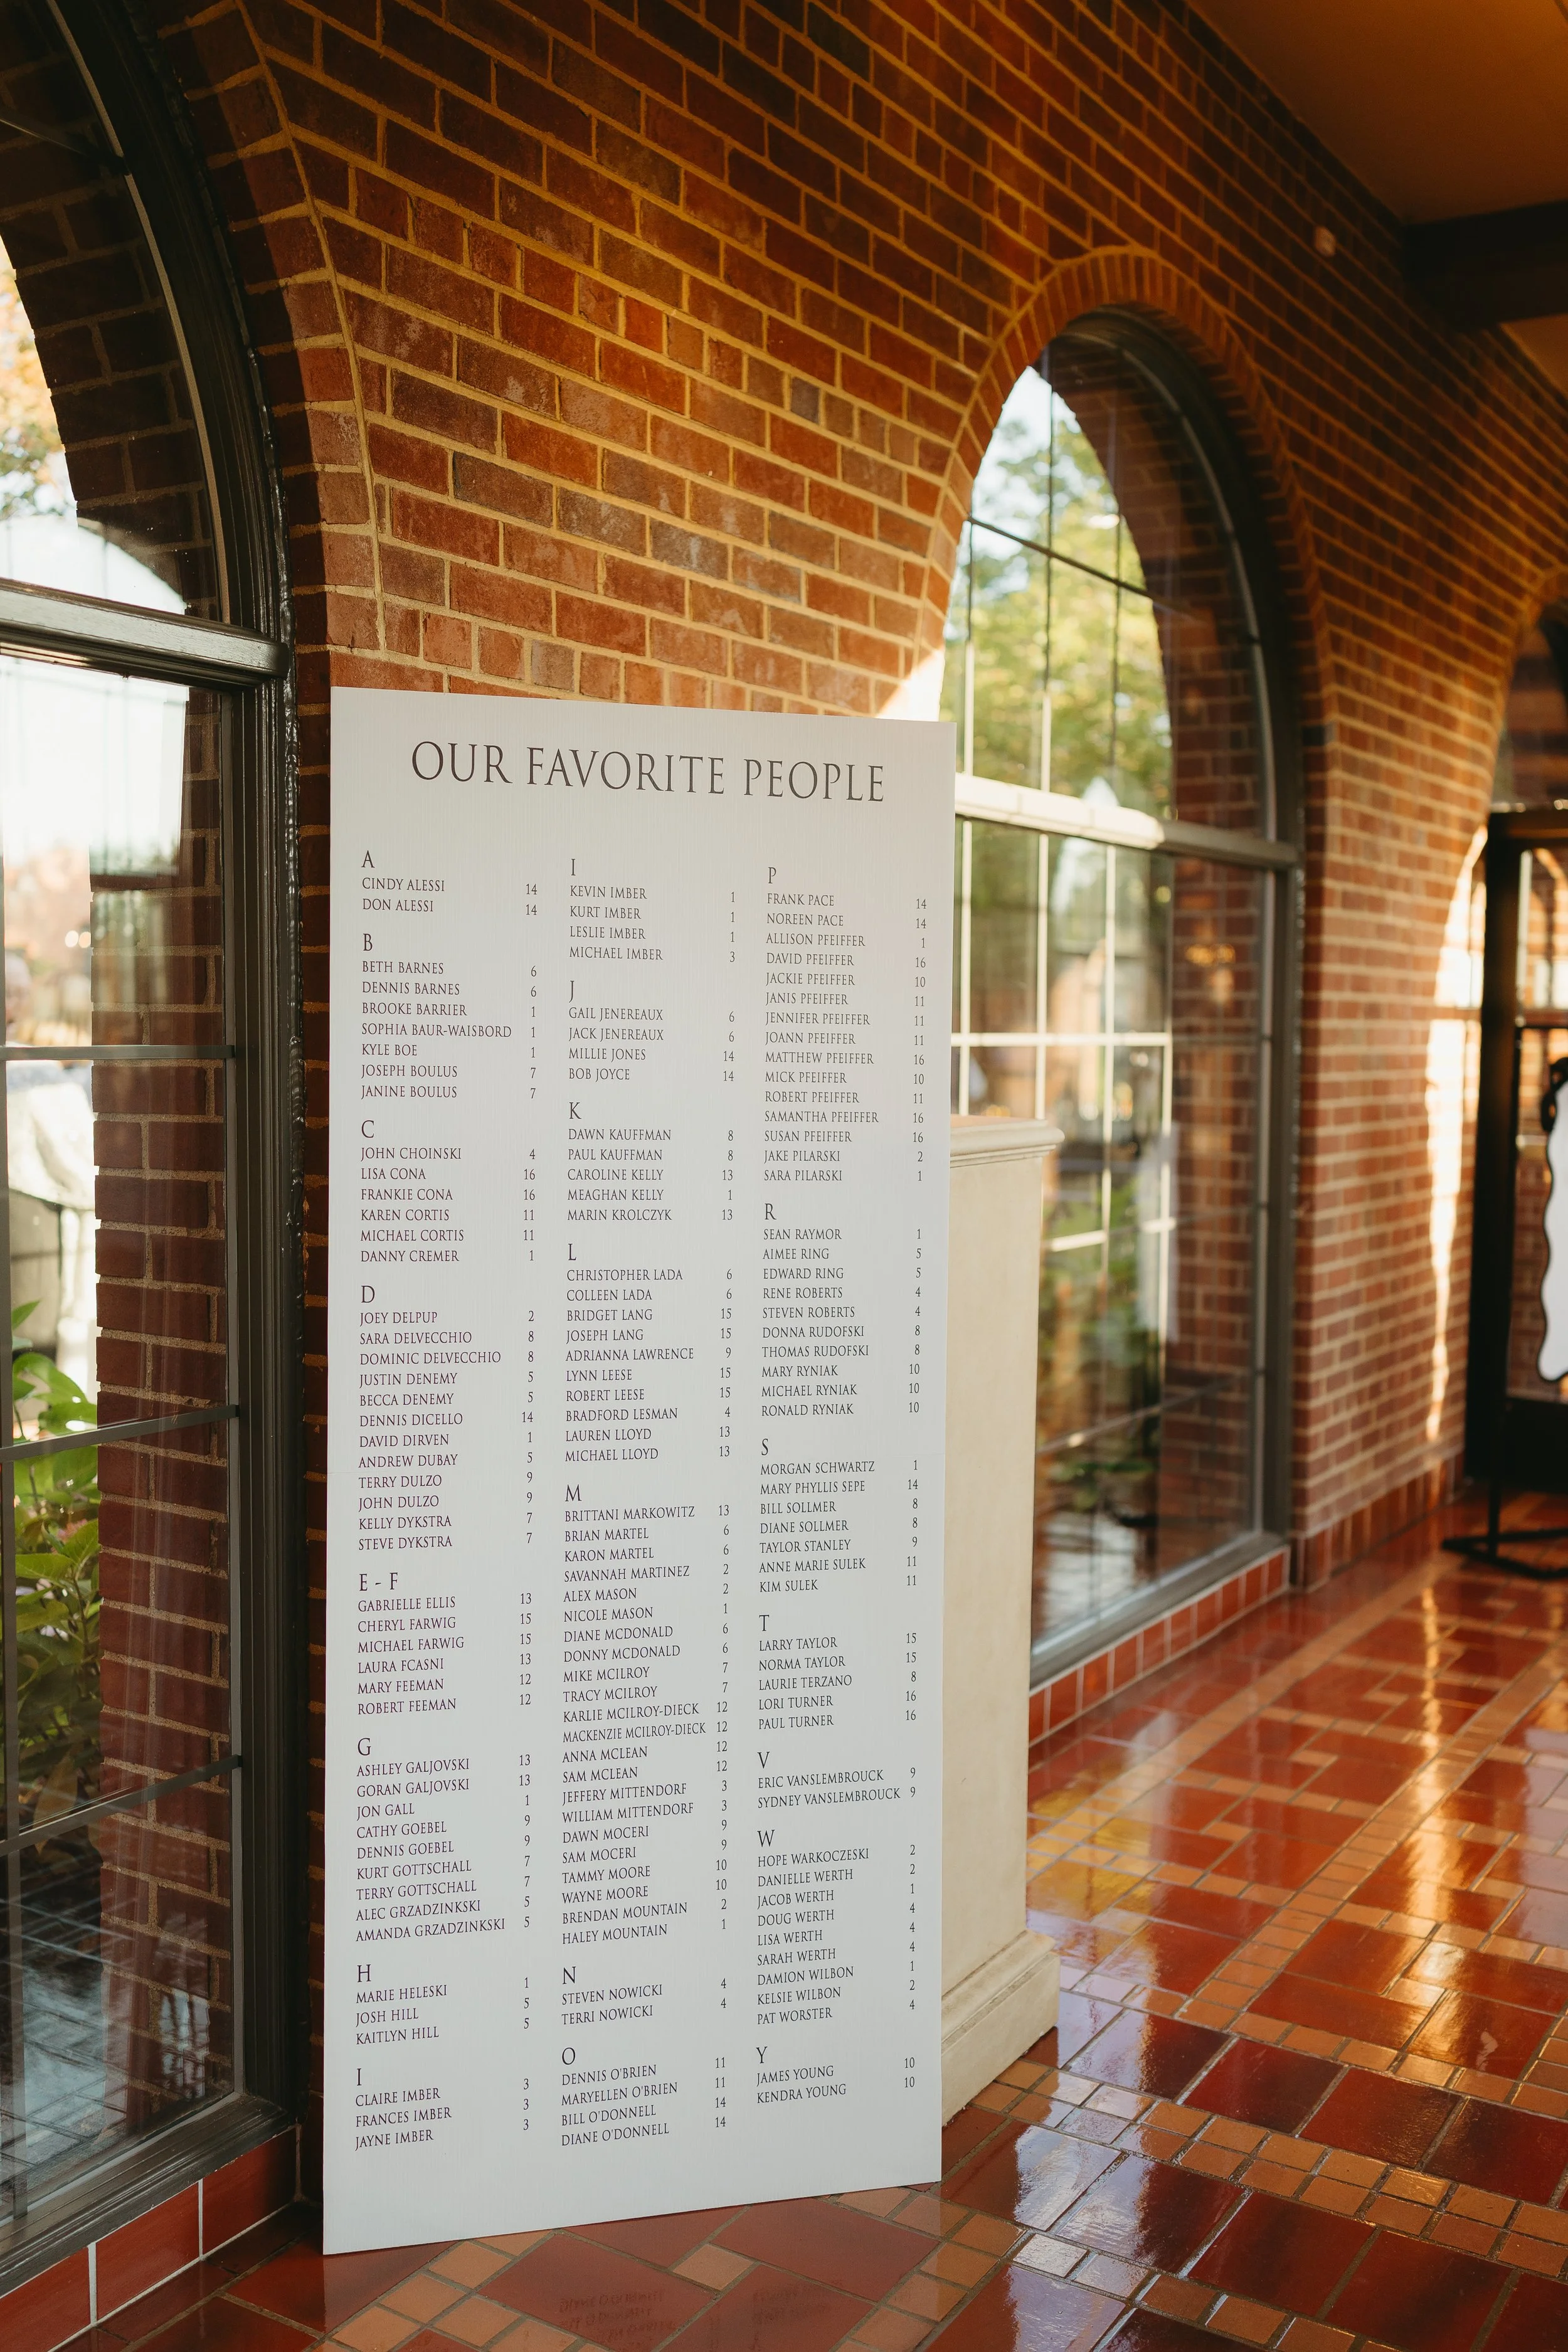 OUR FAVORITE PEOPLE
A
CINDY ALESSI 14
DON ALESSI 14
B
BETH BARNES 6
DENNIS BARNES 6
BROOKE BARRIER 1
SOPHIA BAUR-WAISBORD 1
KYLE BOE 1
JOSEPH BOULUS 7
JANINE BOULUS 7
C
JOHN CHOINSKI 4
LISA CONA 16
FRANKIE CONA 16
KAREN CORTIS 11
MICHAEL CORTIS 11
DANNY CREMER 1
D
JOEY DELPUP 2
SARA DELVECCHIO 8
DOMINIC DELVECCHIO 8
JUSTIN DENEMY 5
BECCA DENEMY 5
DENNIS DICELLO 14
DAVID DIRVEN 1
ANDREW DUBAY 5
TERRY DULZO 9
JOHN DULZO 9
KELLY DYKSTRA 7
STEVE DYKSTRA 7
E - F
GABRIELLE ELLIS 13
CHERYL FARWIG 15
MICHAEL FARWIG 15
LAURA FCASNI 13
MARY FEEMAN 12
ROBERT FEEMAN 12
G
ASHLEY GALJOVSKI 13
GORAN GALJOVSKI 13
JON GALL 1
CATHY GOEBEL 9
DENNIS GOEBEL 9
KURT GOTTSCHALL 7
TERRY GOTTSCHALL 7
ALEC GRZADZINKSKI 5
AMANDA GRZADZINKSKI 5
H
MARIE HELESKI 1
JOSH HILL 5
KAITLYN HILL 5
I
CLAIRE IMBER 3
FRANCES IMBER 3
JAYNE IMBER 3
I
KEVIN IMBER 1
KURT IMBER 1
LESLIE IMBER 1
MICHAEL IMBER 3
J
GAIL JENEREAUX 6
JACK JENEREAUX 6
MILLIE JONES 14
BOB JOYCE 14
K
DAWN KAUFFMAN 8
PAUL KAUFFMAN 8
CAROLINE KELLY 13
MEAGHAN KELLY 1
MARIN KROLCZYK 13
L
CHRISTOPHER LADA 6
COLLEEN LADA 6
BRIDGET LANG 15
JOSEPH LANG 15
ADRIANNA LAWRENCE 9
LYNN LEESE 15
ROBERT LEESE 15
BRADFORD LESMAN 4
LAUREN LLOYD 13
MICHAEL LLOYD 13
M
BRITTANI MARKOWITZ 13
BRIAN MARTEL 6
KARON MARTEL 6
SAVANNAH MARTINEZ 2
ALEX MASON 2
NICOLE MASON 1
DIANE MCDONALD 6
DONNY MCDONALD 6
MIKE MCILROY 7
TRACY MCILROY 7
KARLIE MCILROY-DIECK 12
MACKENZIE MCILROY-DIECK 12
ANNA MCLEAN 12
SAM MCLEAN 12
JEFFERY MITTENDORF 3
WILLIAM MITTENDORF 3
DAWN MOCERI 9
SAM MOCERI 9
TAMMY MOORE 10
WAYNE MOORE 10
BRENDAN MOUNTAIN 2
HALEY MOUNTAIN 1
N
STEVEN NOWICKI 4
TERRI NOWICKI 4
O
DENNIS O'BRIEN 11
MARYELLEN O'BRIEN 11
BILL O'DONNELL 14
DIANE O'DONNELL 14
P
FRANK PACE 14
NOREEN PACE 14
ALLISON PFEIFFER 1
DAVID PFEIFFER 16
JACKIE PFEIFFER 10
JANIS PFEIFFER 11
JENNIFER PFEIFFER 11
JOANN PFEIFFER 11
MATTHEW PFEIFFER 16
MICK PFEIFFER 10
ROBERT PFEIFFER 11
SAMANTHA PFEIFFER 16
SUSAN PFEIFFER 16
JAKE PILARSKI 2
SARA PILARSKI 1
R
SEAN RAYMOR 1
AIMEE RING 5
EDWARD RING 5
RENE ROBERTS 4
STEVEN ROBERTS 4
DONNA RUDOFSKI 8
THOMAS RUDOFSKI 8
MARY RYNIAK 10
MICHAEL RYNIAK 10
RONALD RYNIAK 10
S
MORGAN SCHWARTZ 1
MARY PHYLLIS SEPE 14
BILL SOLLMER 8
DIANE SOLLMER 8
TAYLOR STANLEY 9
ANNE MARIE SULEK 11
KIM SULEK 11
T
LARRY TAYLOR 15
NORMA TAYLOR 15
LAURIE TERZANO 8
LORI TURNER 16
PAUL TURNER 16
V
ERIC VANSLEMBROUCK 9
SYDNEY VANSLEMBROUCK 9
W
HOPE WARKOCZESKI 2
DANIELLE WERTH 2
JACOB WERTH 1
DOUG WERTH 4
LISA WERTH 4
SARAH WERTH 4
DAMION WILBON 1
KELSIE WILBON 2
PAT WORSTER 4
Y
JAMES YOUNG 10
KENDRA YOUNG 10